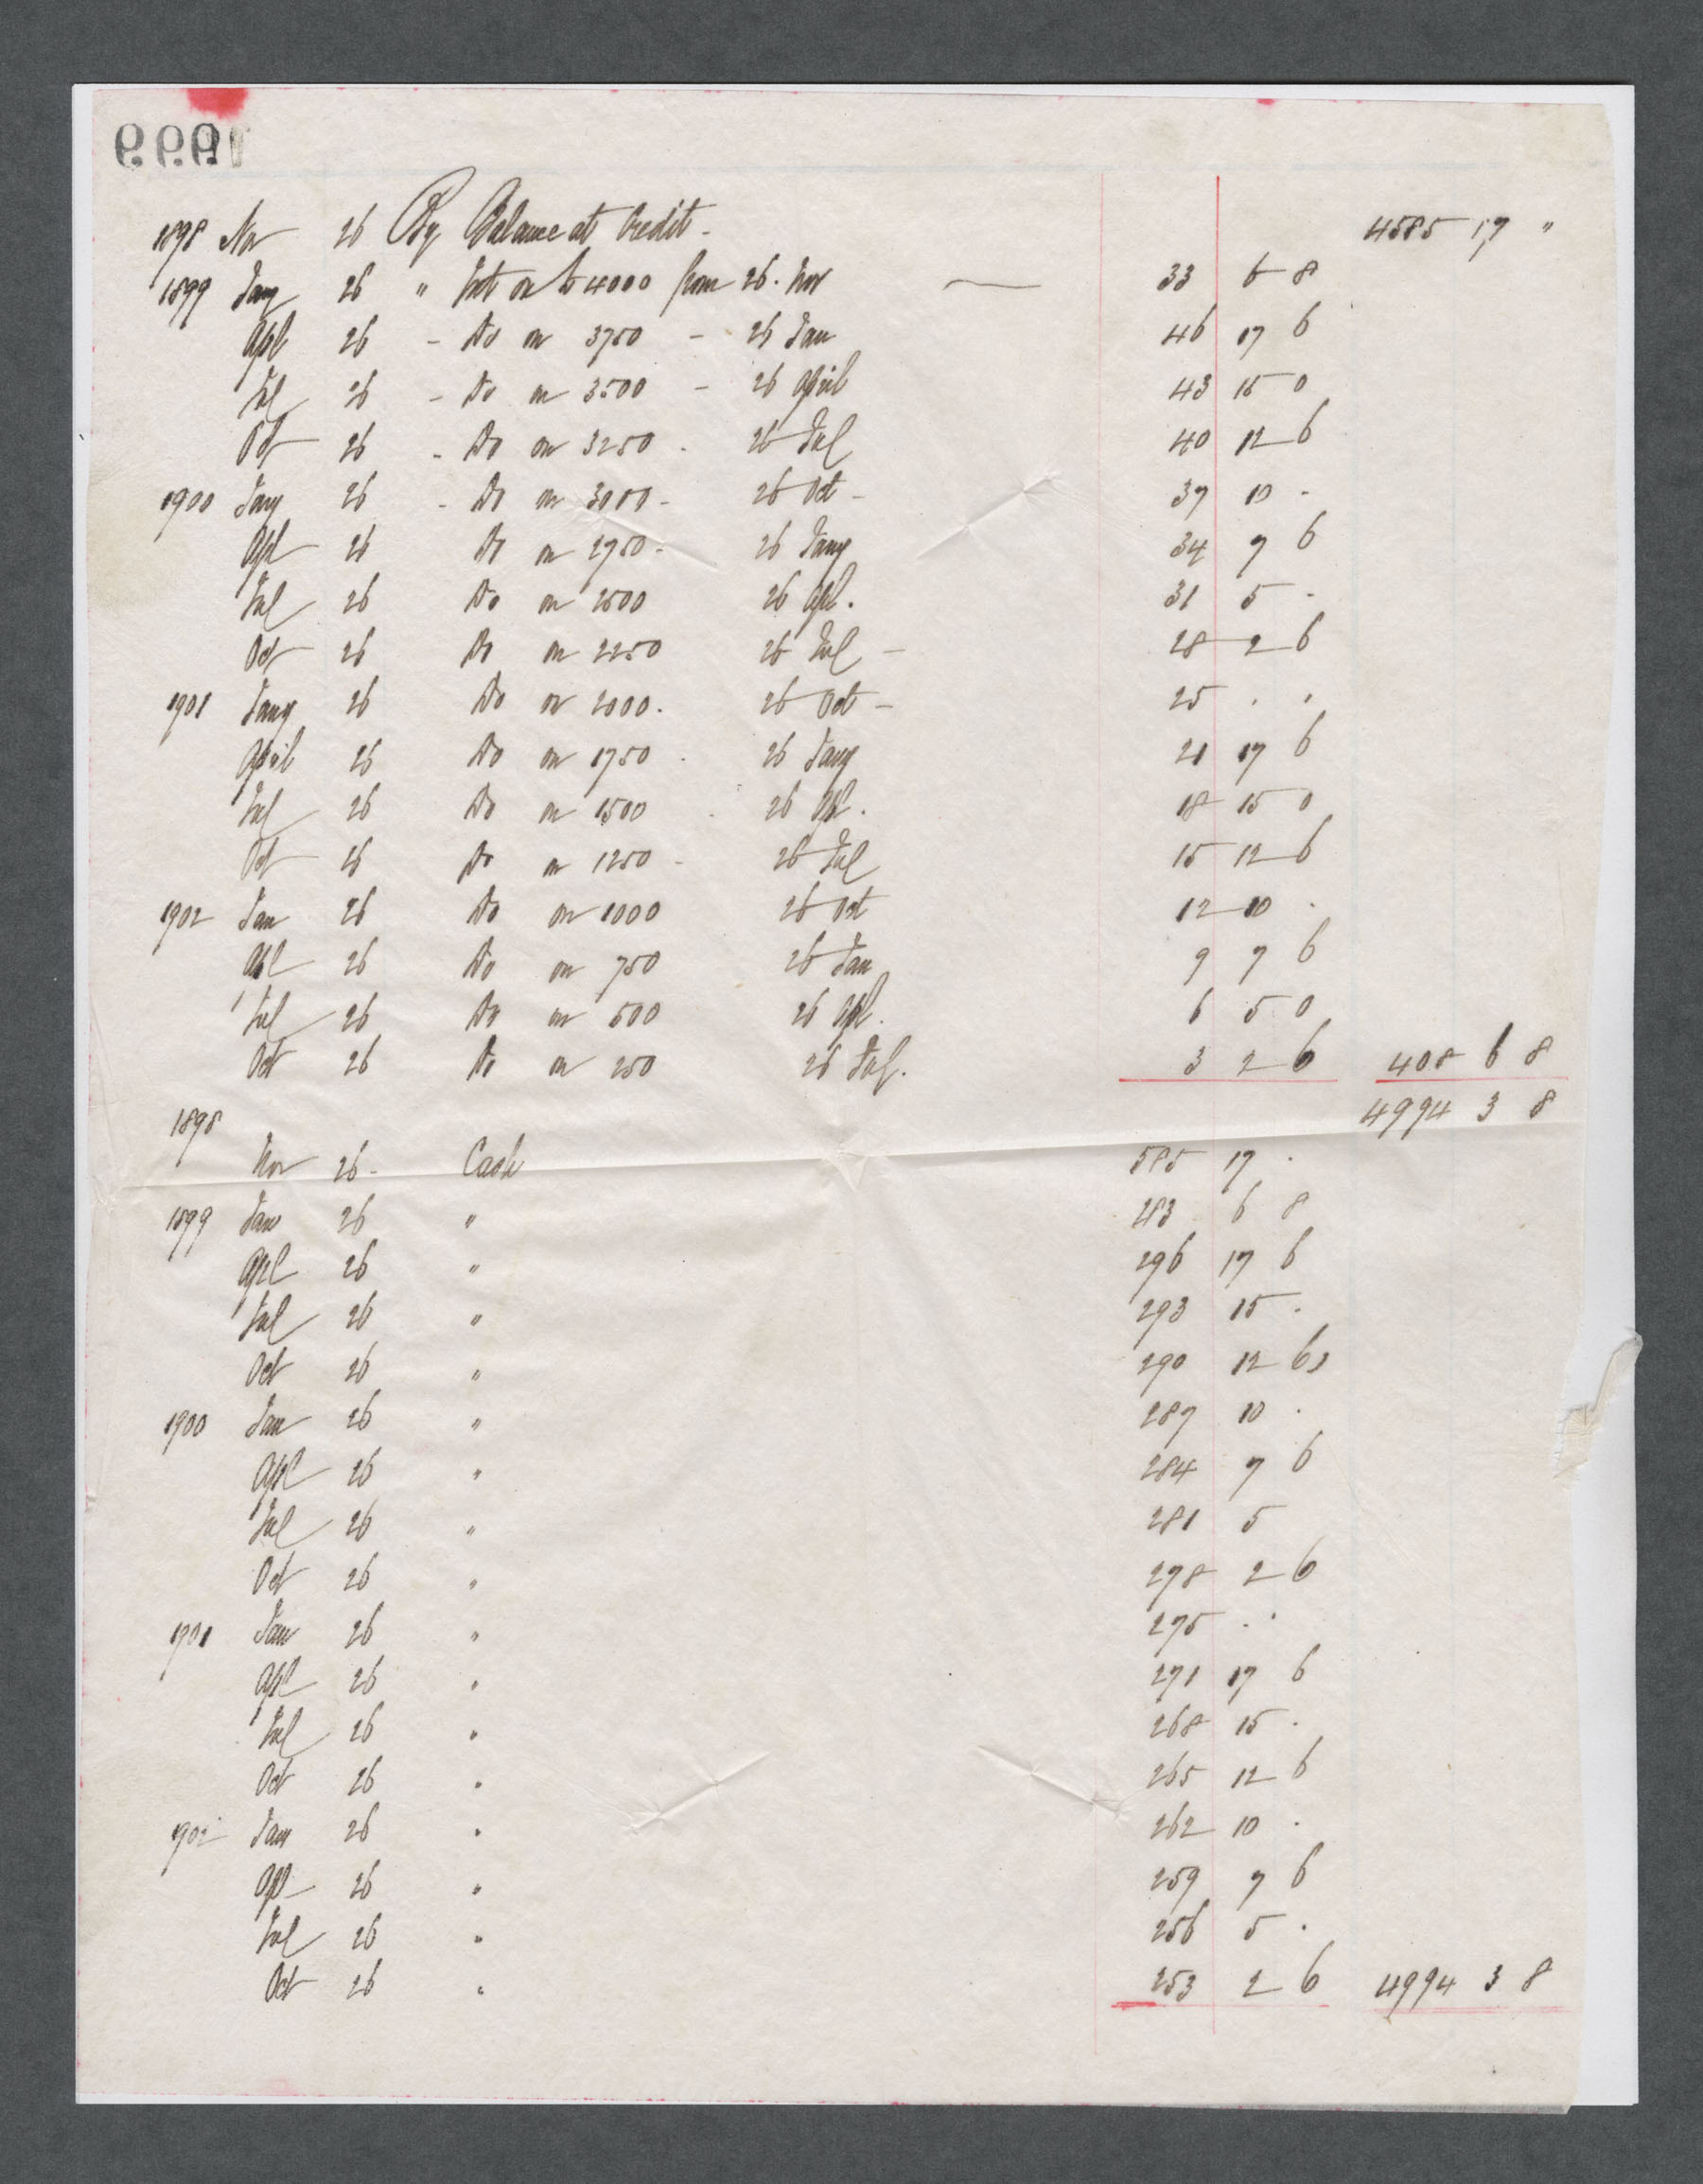 1999
1898 Nov 26 By Balance at Credit - 4585 17 "
1899 Jany 26 " Int on £4000 from 26. Nov — 33 6 8
Apl 26 - Do on 3750 - 26 Jan 46 17 6
Jul 26 - Do on 3500 - 26 April 43 15 0
Oct 26 - Do on 3250 - 26 Jul 40 12 6
1900 Jany 26 - Do on 3000 - 26 Oct - 37 10 -
Apl 26 Do on 2750 - 26 Jany 34 7 6
Jul 26 Do on 2500 26 Apl. 31 5 -
Oct 26 Do on 2250 26 Jul - 28 2 6
1901 Jany 26 Do on 2000. 26 Oct - 25 . .
April 26 Do on 1750 - 26 Jany 21 17 6
Jul 26 Do on 1500 . 26 Apl. 18 15 0
Oct 26 Do on 1250 - 26 Jul 15 12 6
1902 Jan 26 Do on 1000 26 Oct 12 10 .
Apl 26 Do on 750 26 Jan 9 7 6
Jul 26 Do on 500 26 Apl. 6 5 0
Oct 26 Do on 250 26 Jul. 3 2 6 408 6 8
4994 3 8
1898
Nov 26 - Cash 585 17 .
1899 Jan 26 " 283 6 8
Apl 26 " 296 17 6
Jul 26 " 293 15 .
Oct 26 " 290 12 6
1900 Jan 26 " 287 10 .
Apl 26 " 284 7 6
Jul 26 " 281 5
Oct 26 " 278 2 6
1901 Jan 26 " 275 . .
Apl 26 " 271 17 6
Jul 26 " 268 15 .
Oct 26 " 265 12 6
1902 Jan 26 " 262 10 .
Apl 26 " 259 7 6
Jul 26 " 256 5 .
Oct 26 " 253 2 6 4994 3 8